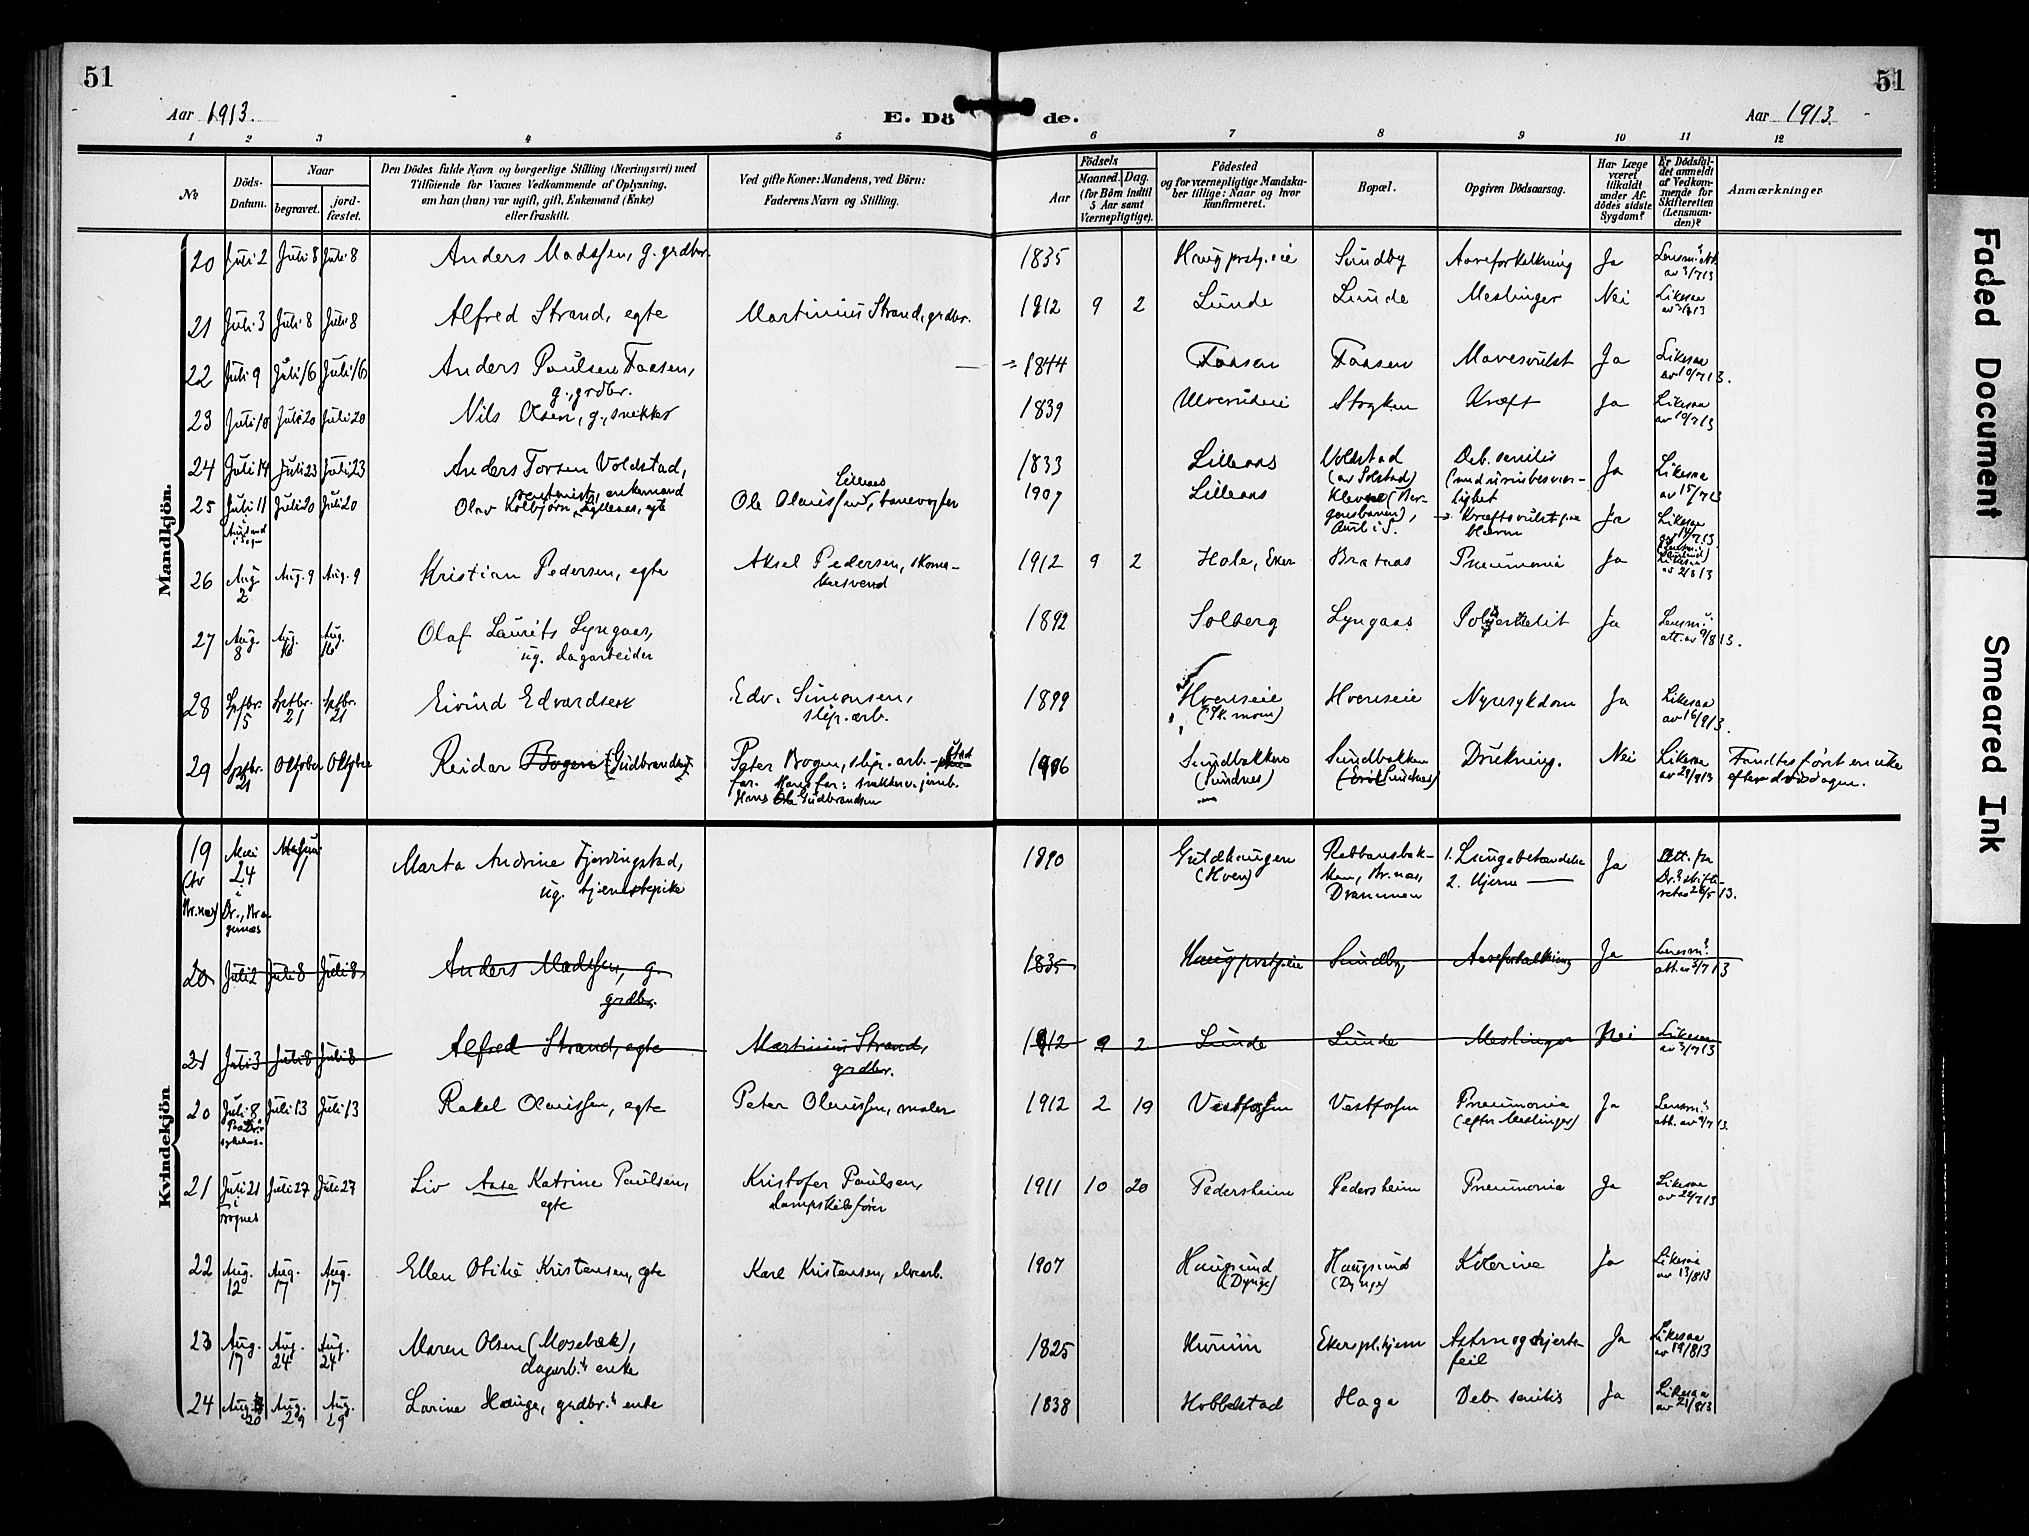 51
51
Aar 1913.
E. Dö de.
Aar 1913.
1 2 3 4 5 6 7 8 9 10 11 12
№
Döds-Datum.
Naar
begravet.
jord-fæstet.
Den Dödes fulde Navn og borgerlige Stilling (Næringsvei) med
Tilföiende for Voxnes Vedkommende af Oplysning,
om han (hun) var ugift, gift, Enkemand (Enke)
eller fraskilt.
Ved gifte Koner: Mandens, ved Börn:
Faderens Navn og Stilling.
Födsels
Aar
Maaned. Dag.
(for Börn indtil
5 Aar samt
Værnepligtige).
Födested
og for værnepligtige Mandska-
ber tillige: Naar og hvor
Konfirmeret.
Bopæl.
Opgiven Dödsaarsag.
Har Læge
været
tilkaldt
under Af-
dödes sidste
Sygdom?
Er Dödsfal-
det anmeldt
af Vedkom-
mende for
Skifteretten
(Lensman-
den)?
Anmærkninger.
Mandkjön.
20 Juli 2 Juli 8 Juli 8 Anders Madssen, g. grdbr. 1835 Haug prstg.eie Sundby Aareforkalkning Ja Lensm.s att. av 3/7 13
21 Juli 3 Juli 8 Juli 8 Alfred Strand, egte Martinius Strand, grdbr. 1912 9 2 Lunde Lunde Meslinger Nei Likesaa av 3/7 13
22 Juli 9 Juli 16 Juli 16 Anders Paulsen Faasen, g., grdbr. 1844 Faasen Faasen Mavesvulst Ja Likesaa av 10/7 13.
23 Juli 10 Juli 20 Juli 20 Nils Olsen, g., snekker 1839 Stryken Kræft Ja Likesaa av 10/7 13
24 Juli 14 Juli 23 Juli 23 Anders Torsen Voldstad, enkemand 1833 Lilleaas Voldstad (av Solstad) Deb. senilis Ja Likesaa av 15/7 13
25 Juli 11 i Aurland i Sogn Juli 20 Juli 20 Olav Kolbjørn Lilleaas, egte Ole Olaussen Lilleaas, banevogter 1907 Lilleaas Klevene (Ber-gensbanen), Aurl. i S. Kræftsvulst paa blæren Ja Likesaa av 14/7 13 (Lensm. i Aurland)
26 Aug 2 Aug. 9 Aug. 9 Kristian Pedersen, egte Aksel Pedersen, skoma-kersvend 1912 9 2 Hole, Eker Brataas Pneumonia Ja Likesaa av 2/8 13
27 Aug. 8 Aug. 16 Aug. 16 Olaf Laurits Lyngaas, ug. dagarbeider 1892 Solberg Lyngaas Ja Lensm.s att. av 9/8 13.
28 Sptbr. 15 Sptbr. 21 Sptbr. 21 Eivind Edvardsen Edv. Simonsen, slip.arb. 1899 Hvenseie Hvenseie Nyresykdom Ja Likesaa av 16/9 13.
29 Sptbr. 21 Oktober Oktober Reidar Bogen (Gudbrandsen). Peter Bogen, slip. arb. - far. Mors far: snekker v. jernb. Hans Ole Gudbrandsen 1906 Sundbakken (Sundnes) Sundbakken (Sundnes) Drukning. Nei Likesaa av 29/9 13 Fandtes først en uke efter dødsdagen.
Kvindekjön
19 (Av Br.nes) Mai 24 i Dr., Bra-gernes Marta Andrine Fjerdingstad, ug. tjenestepike 1890 Guldhaugen (Hoen) Rabbansbak-ken, Br.nes, Drammen 1. Lungebetændelse 2. Hjerne — Ja Att. fra Dr.s skifte-ret av 26/5 13.
20 Juli 2 Juli 8 Juli 8 Anders Madssen, g. grdbr. 1835 Haug prstg.eie Sundby Aareforkalkning Ja Lensm.s att. av 3/7 13
21 Juli 3 Juli 8 Juli 8 Alfred Strand, egte Martinius Strand, grdbr. 1912 9 2 Lunde Lunde Meslinger Nei Likesaa av 3/7 13
20 Juli 8 Juli 13 Juli 13 Rakel Olaussen, egte Peter Olaussen, maler 1912 2 19 Vestfossen Vestfossen Pneumonia (efter Meslinger) Ja Lensm.s att. av 9/7 13.
21 Juli 21 i Sognes Juli 27 Juli 27 Liv Aase Katrine Paulsen, egte Kristofer Paulsen, dampskibsfører 1911 10 20 Pedersheim Pedersheim Pneumonia Ja Likesaa av 22/7 13
22 Aug. 12 Aug. 17 Aug. 17 Ellen Otilie Kristensen, egte Karl Kristensen, elvearb. 1907 Haugsund (Dynge) Haugsund (Dynge) Kolerine Ja Likesaa av 13/8 13
23 Aug. 17 Aug. 24 Aug. 24 Maren Olsen (Mosebæk), dagarb.s enke 1825 Hurum Ekers pl.hjem Astma og hjerte-feil Ja Likesaa av 19/8 13
24 Aug. 20 Aug. 29 Aug. 29 Larine Hauge, grdbr.s enke 1838 Hobbelstad Haga Deb. senilis Ja Likesaa av 21/8 13
Faded Document
Smeared Ink